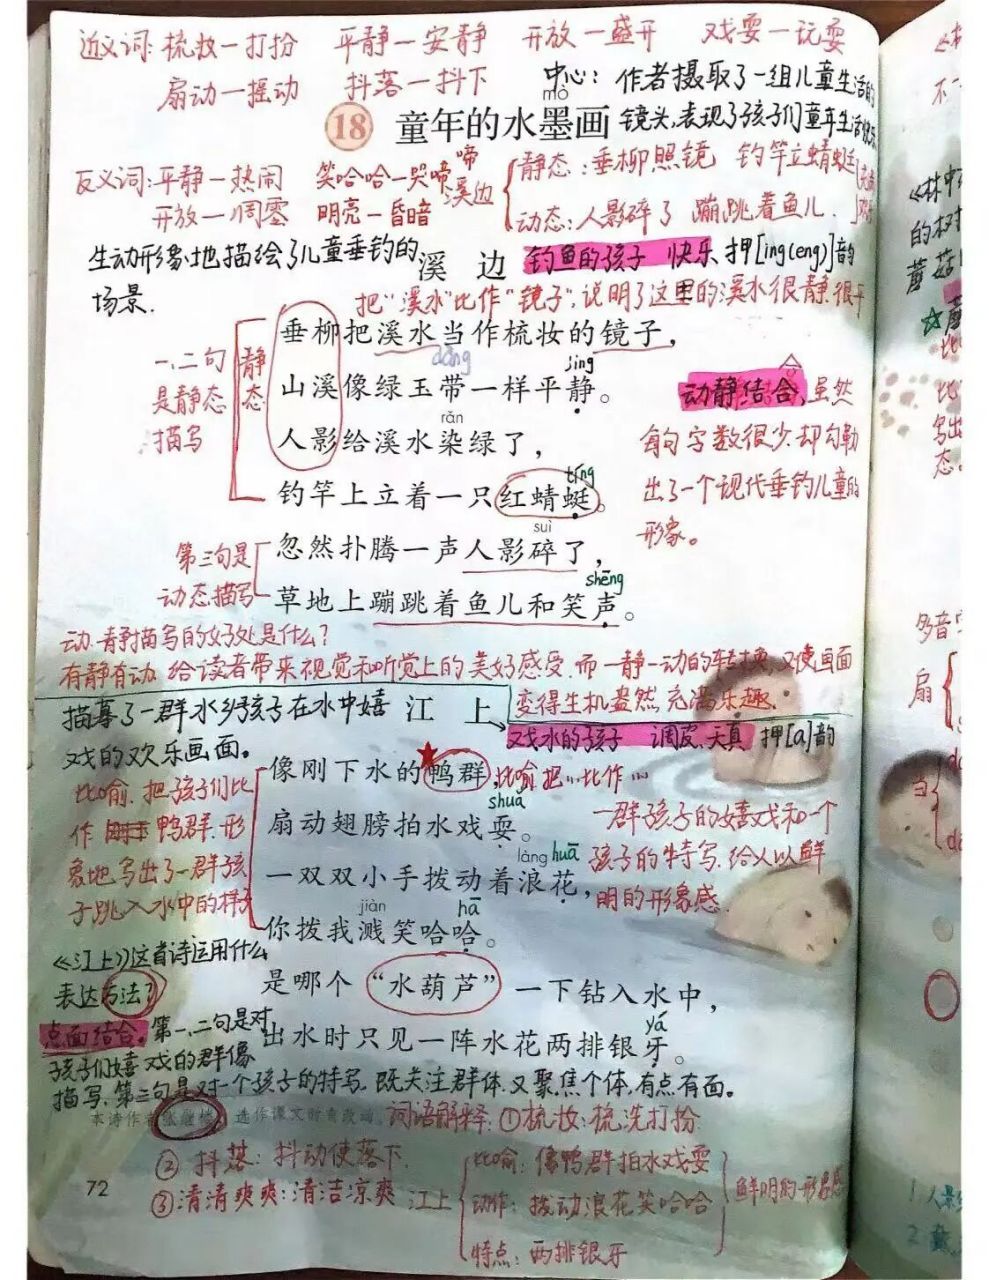 近义词:梳妆—打扮 平静—安静 开放—盛开 戏耍—玩耍
扇动—摇动 抖落—抖下
中心:作者摄取了一组儿童生活的
镜头,表现了孩子们童年生活
mò
18 童年的水墨画
反义词:平静—热闹 笑哈哈—哭啼啼
开放—凋零 明亮—昏暗
溪边
静态:垂柳照镜 钓竿立蜻蜓
动态:人影碎了 蹦跳着鱼儿
生动形象地描绘了儿童垂钓的
场景.
溪 边
钓鱼的孩子 快乐 押[ing(eng)]韵
把"溪水"比作"镜子",说明了这里的溪水很静.很
垂柳把溪水当作梳妆的镜子,
dàng
jìng
山溪像绿玉带一样平静。
rǎn
人影给溪水染绿了,
tíng
钓竿上立着一只红蜻蜓。
一、二句
是静态
描写
静
态
动静结合,虽然
合
每句字数很少.却勾勒
出了一个现代垂钓儿童的
形象。
suì
忽然扑腾一声人影碎了,
shēng
草地上蹦跳着鱼儿和笑声。
第三句是
动态描写
动.静描写的好处是什么?
有静有动.给读者带来视觉和听觉上的美好感受.而一静一动的转换.又使画面
变得生机盎然.充满乐趣.
描写了一群水乡孩子在水中嬉
戏的欢乐画面。
江 上
戏水的孩子 调皮.天真 押[a]韵
像刚下水的鸭群,
比喻 把……比作……
shuǎ
扇动翅膀拍水戏耍。
làng huā
一双双小手拨动着浪花,
jiàn hā
你拨我溅笑哈哈。
比喻.把孩子们比
作鸭群.形
象地写出了一群孩
子跳入水中的样子
一群孩子的嬉戏和一个
孩子的特写.给人以鲜
明的形象感.
是哪个“水葫芦”一下钻入水中,
yá
出水时只见一阵水花两排银牙。
《江上》这首诗运用什么
表达方法?
点面结合。第一、二句是对
孩子们嬉戏的群像
描写.第三句是对一个孩子的特写.既关注群体.又聚焦个体.有点.有面。
本诗作者张继楼,选作课文时有改动。
词语解释:①梳妆:梳洗打扮.
②抖落:抖动使落下.
③清清爽爽:清洁凉爽
江上
比喻:像鸭群拍水戏耍
动作:拨动浪花笑哈哈
特点:两排银牙
鲜明的形象感
72
《林中
的树
蘑菇
多音字
扇
当